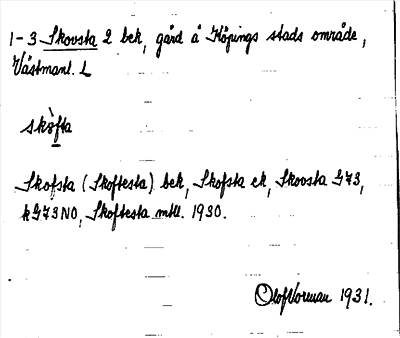 1-3 Skovsta 2 bek, gård å Köpings stads område,
Västmanl. L
skòfta
Skofsta (Skoftesta) bek, Skofsta ek, Skovsta G73,
kG73NO, Skoftesta mtll. 1930.
Olof Noreman 1931.